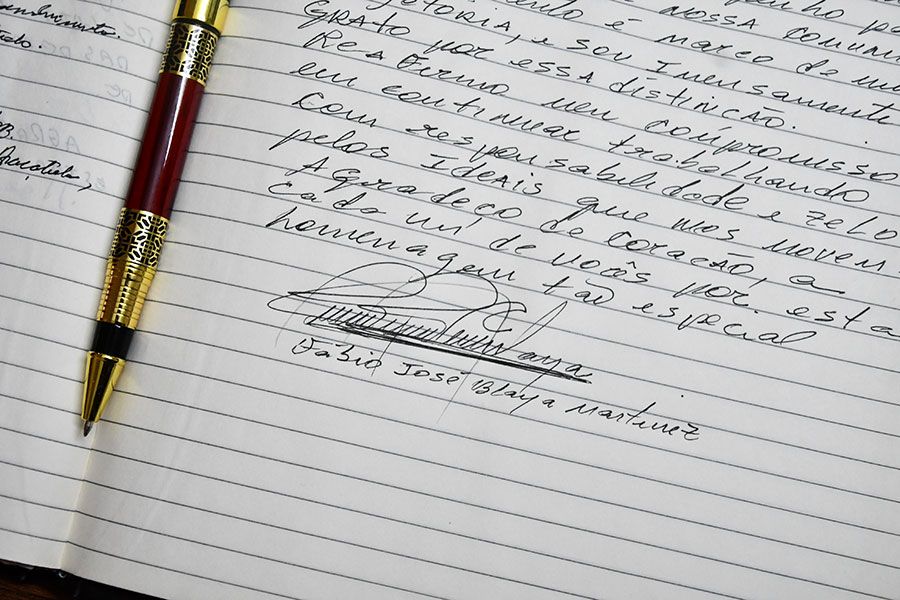 tado.
nossa comuni
é marco de um
GRATO por essa distinção.
etória, e sou Imensamente
Reafirmo meu compromisso
em continuar trabalhando
com responsabilidade e zelo
pelos Ideais que nos movem.
Agradeço de coração, a
cada um de vocês por esta
homenagem tão especial
Fábio José Blaya Martinez